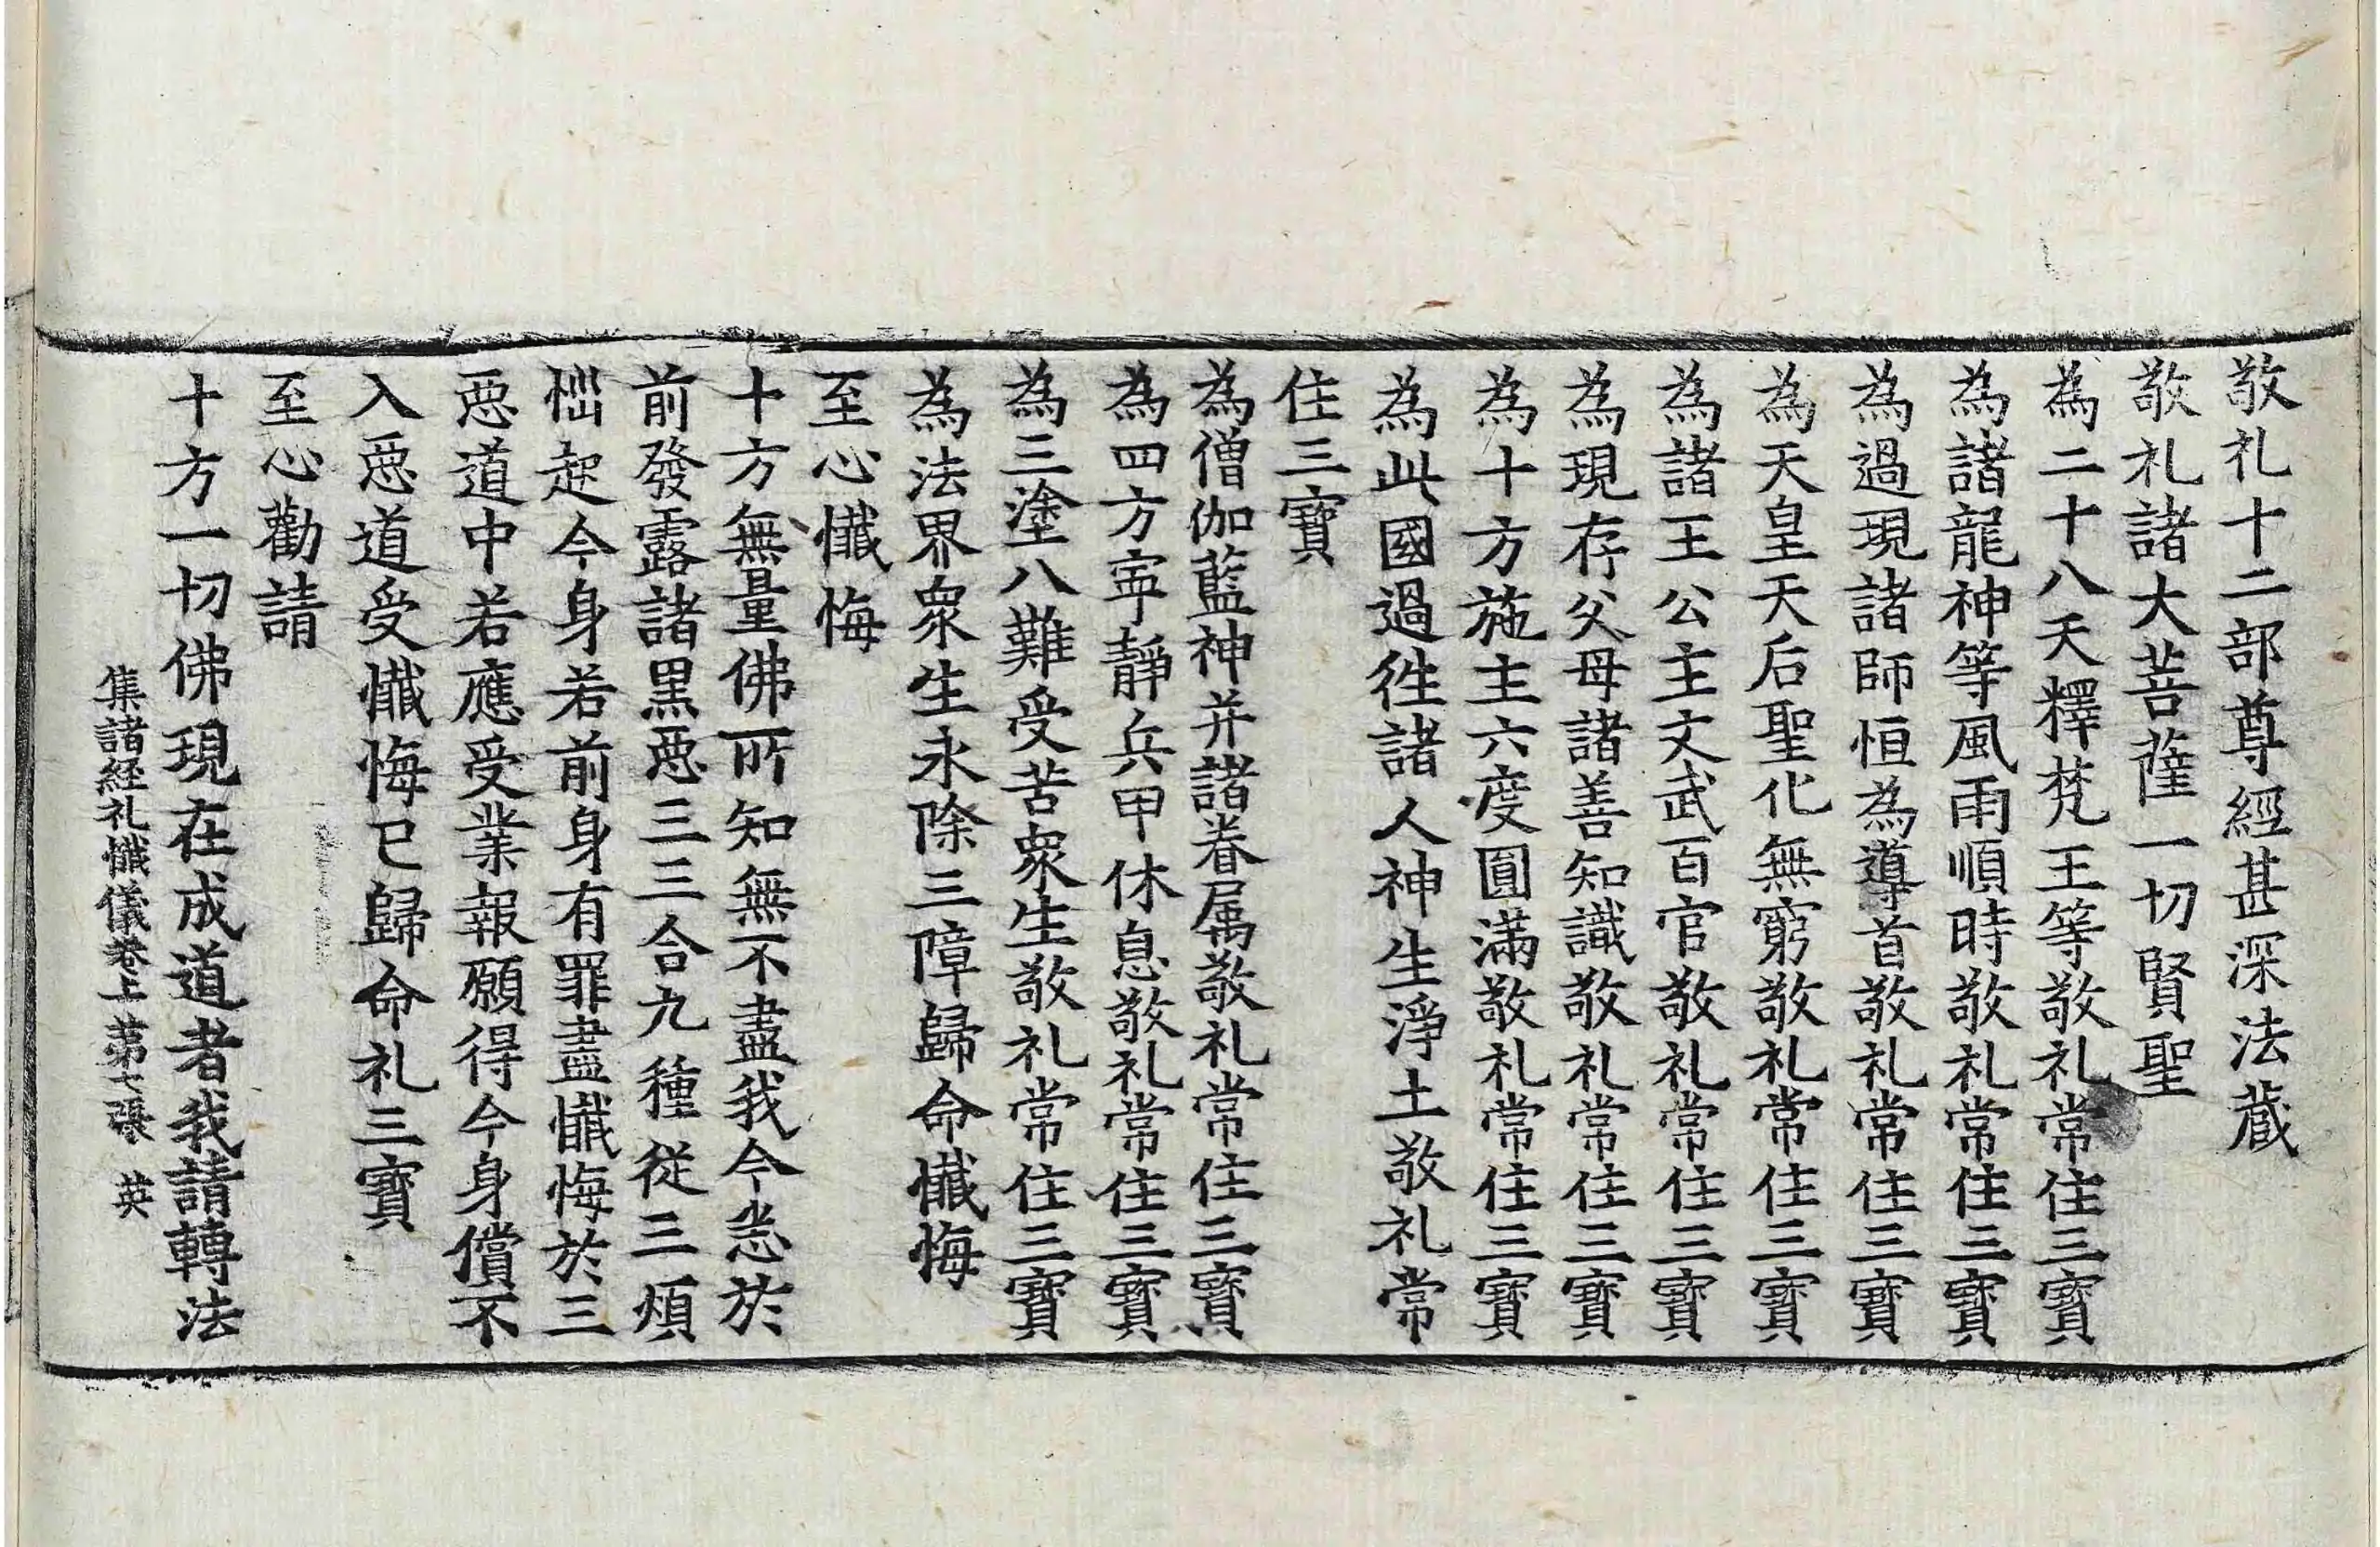 敬礼十二部尊經甚深法藏
敬礼諸大菩薩一切賢聖
為二十八天釋梵王等敬礼常住三寶
為諸龍神等風雨順時敬礼常住三寶
為過現諸師恒為導首敬礼常住三寶
為天皇天后聖化無窮敬礼常住三寶
為諸王公主文武百官敬礼常住三寶
為現存父母諸善知識敬礼常住三寶
為十方施主六度圓滿敬礼常住三寶
為此國過徃諸人神生淨土敬礼常
住三寶
為僧伽藍神并諸眷属敬礼常住三寶
為四方寜靜兵甲休息敬礼常住三寶
為三塗八難受苦衆生敬礼常住三寶
為法界衆生永除三障歸命懺悔
至心懺悔
十方無量佛所知無不盡我今悉於
前發露諸黒惡三三合九種從三煩
惱起今身若前身有罪盡懺悔於三
惡道中若應受業報願得今身償不
入惡道受懺悔已歸命礼三寶
至心勸請
十方一切佛現在成道者我請轉法
集諸經礼懺儀卷上 第七張 英